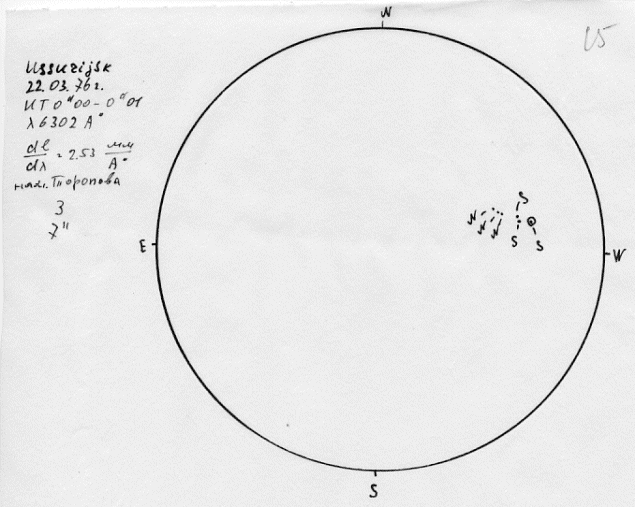 Ussurijsk
22.03.76г.
UT 0ʰ00 - 0ʰ01
λ 6302 A°
dl/dλ = 2.53 мм/A°
набл. Торопова
3
7"
N
E
W
S
N
N
N
S
S
S